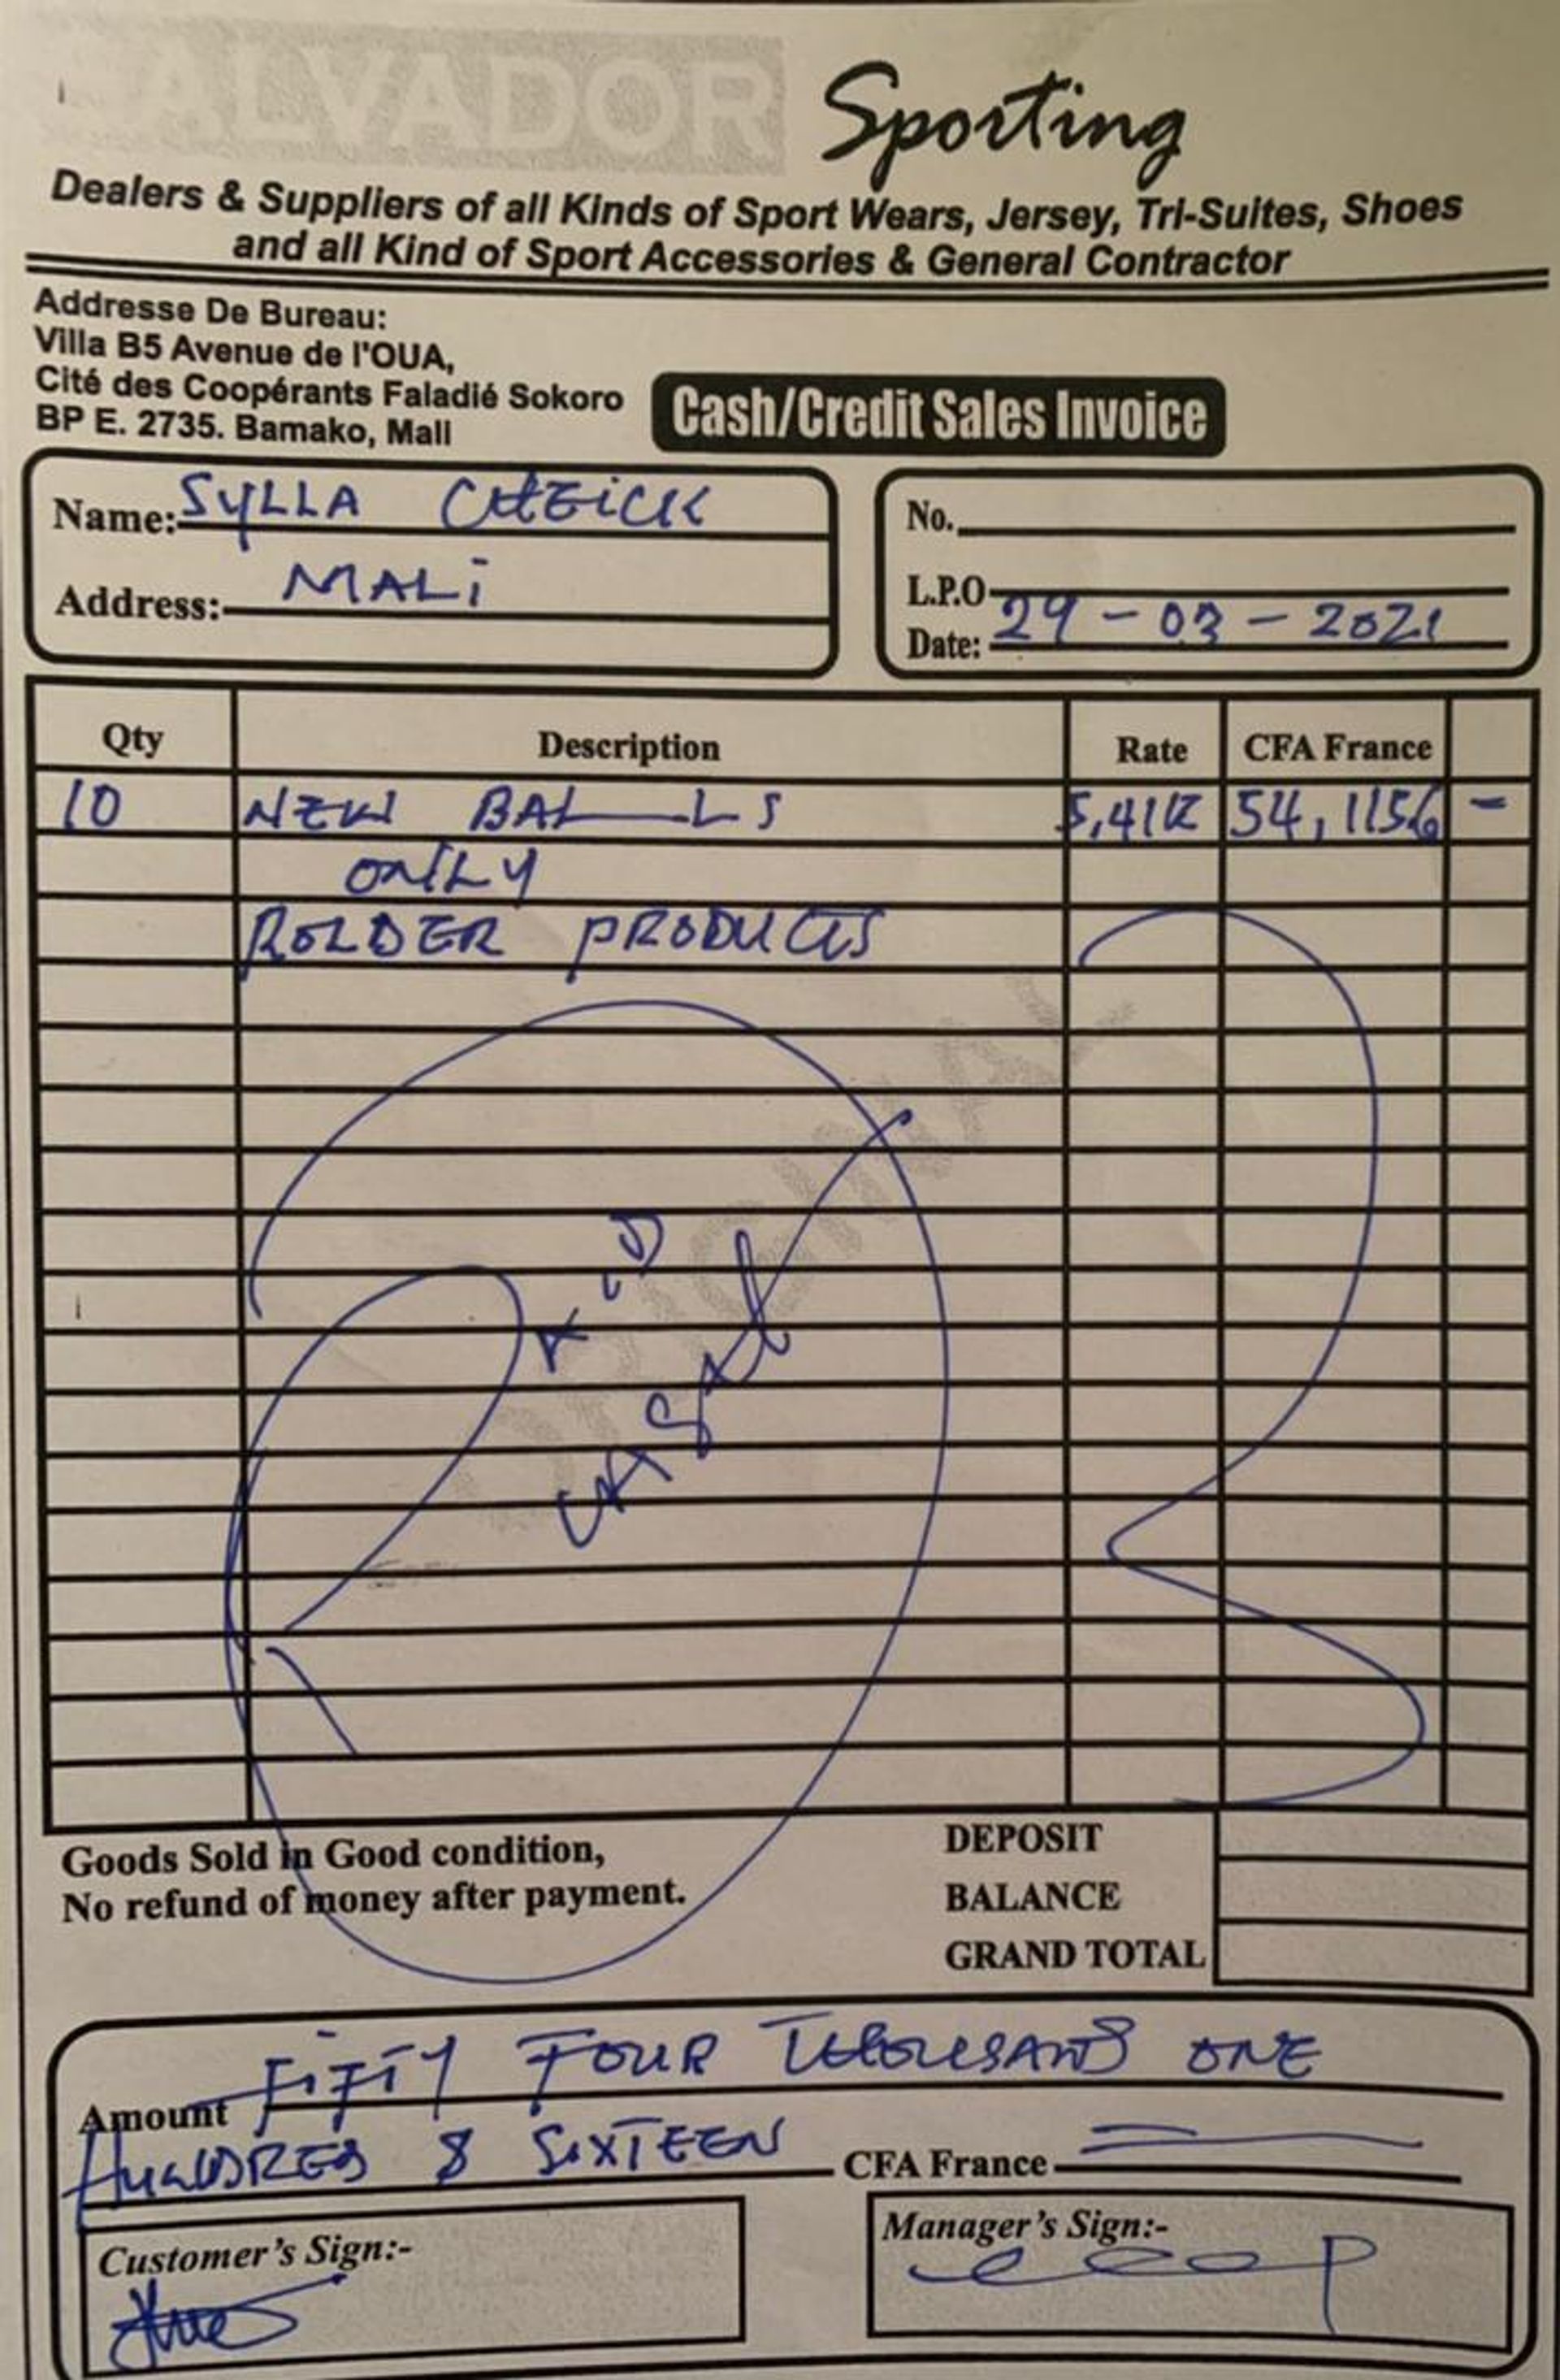 ALVADOR Sporting
Dealers & Suppliers of all Kinds of Sport Wears, Jersey, Tri-Suites, Shoes
and all Kind of Sport Accessories & General Contractor
Addresse De Bureau:
Villa B5 Avenue de l'OUA,
Cité des Coopérants Faladié Sokoro
BP E. 2735. Bamako, Mali
Cash/Credit Sales Invoice
Name: SYLLA CHEICK
Address: MALI
No.
L.P.O
Date: 29-03-2021
Qty Description Rate CFA France
10 NEW BALLS 54,1156 -
ONLY
PRODUCTS
Goods Sold in Good condition,
No refund of money after payment.
DEPOSIT
BALANCE
GRAND TOTAL
Amount FIFTY FOUR THOUSAND ONE
HUNDRED & SIXTEEN CFA France
Customer's Sign:-
Manager's Sign:-